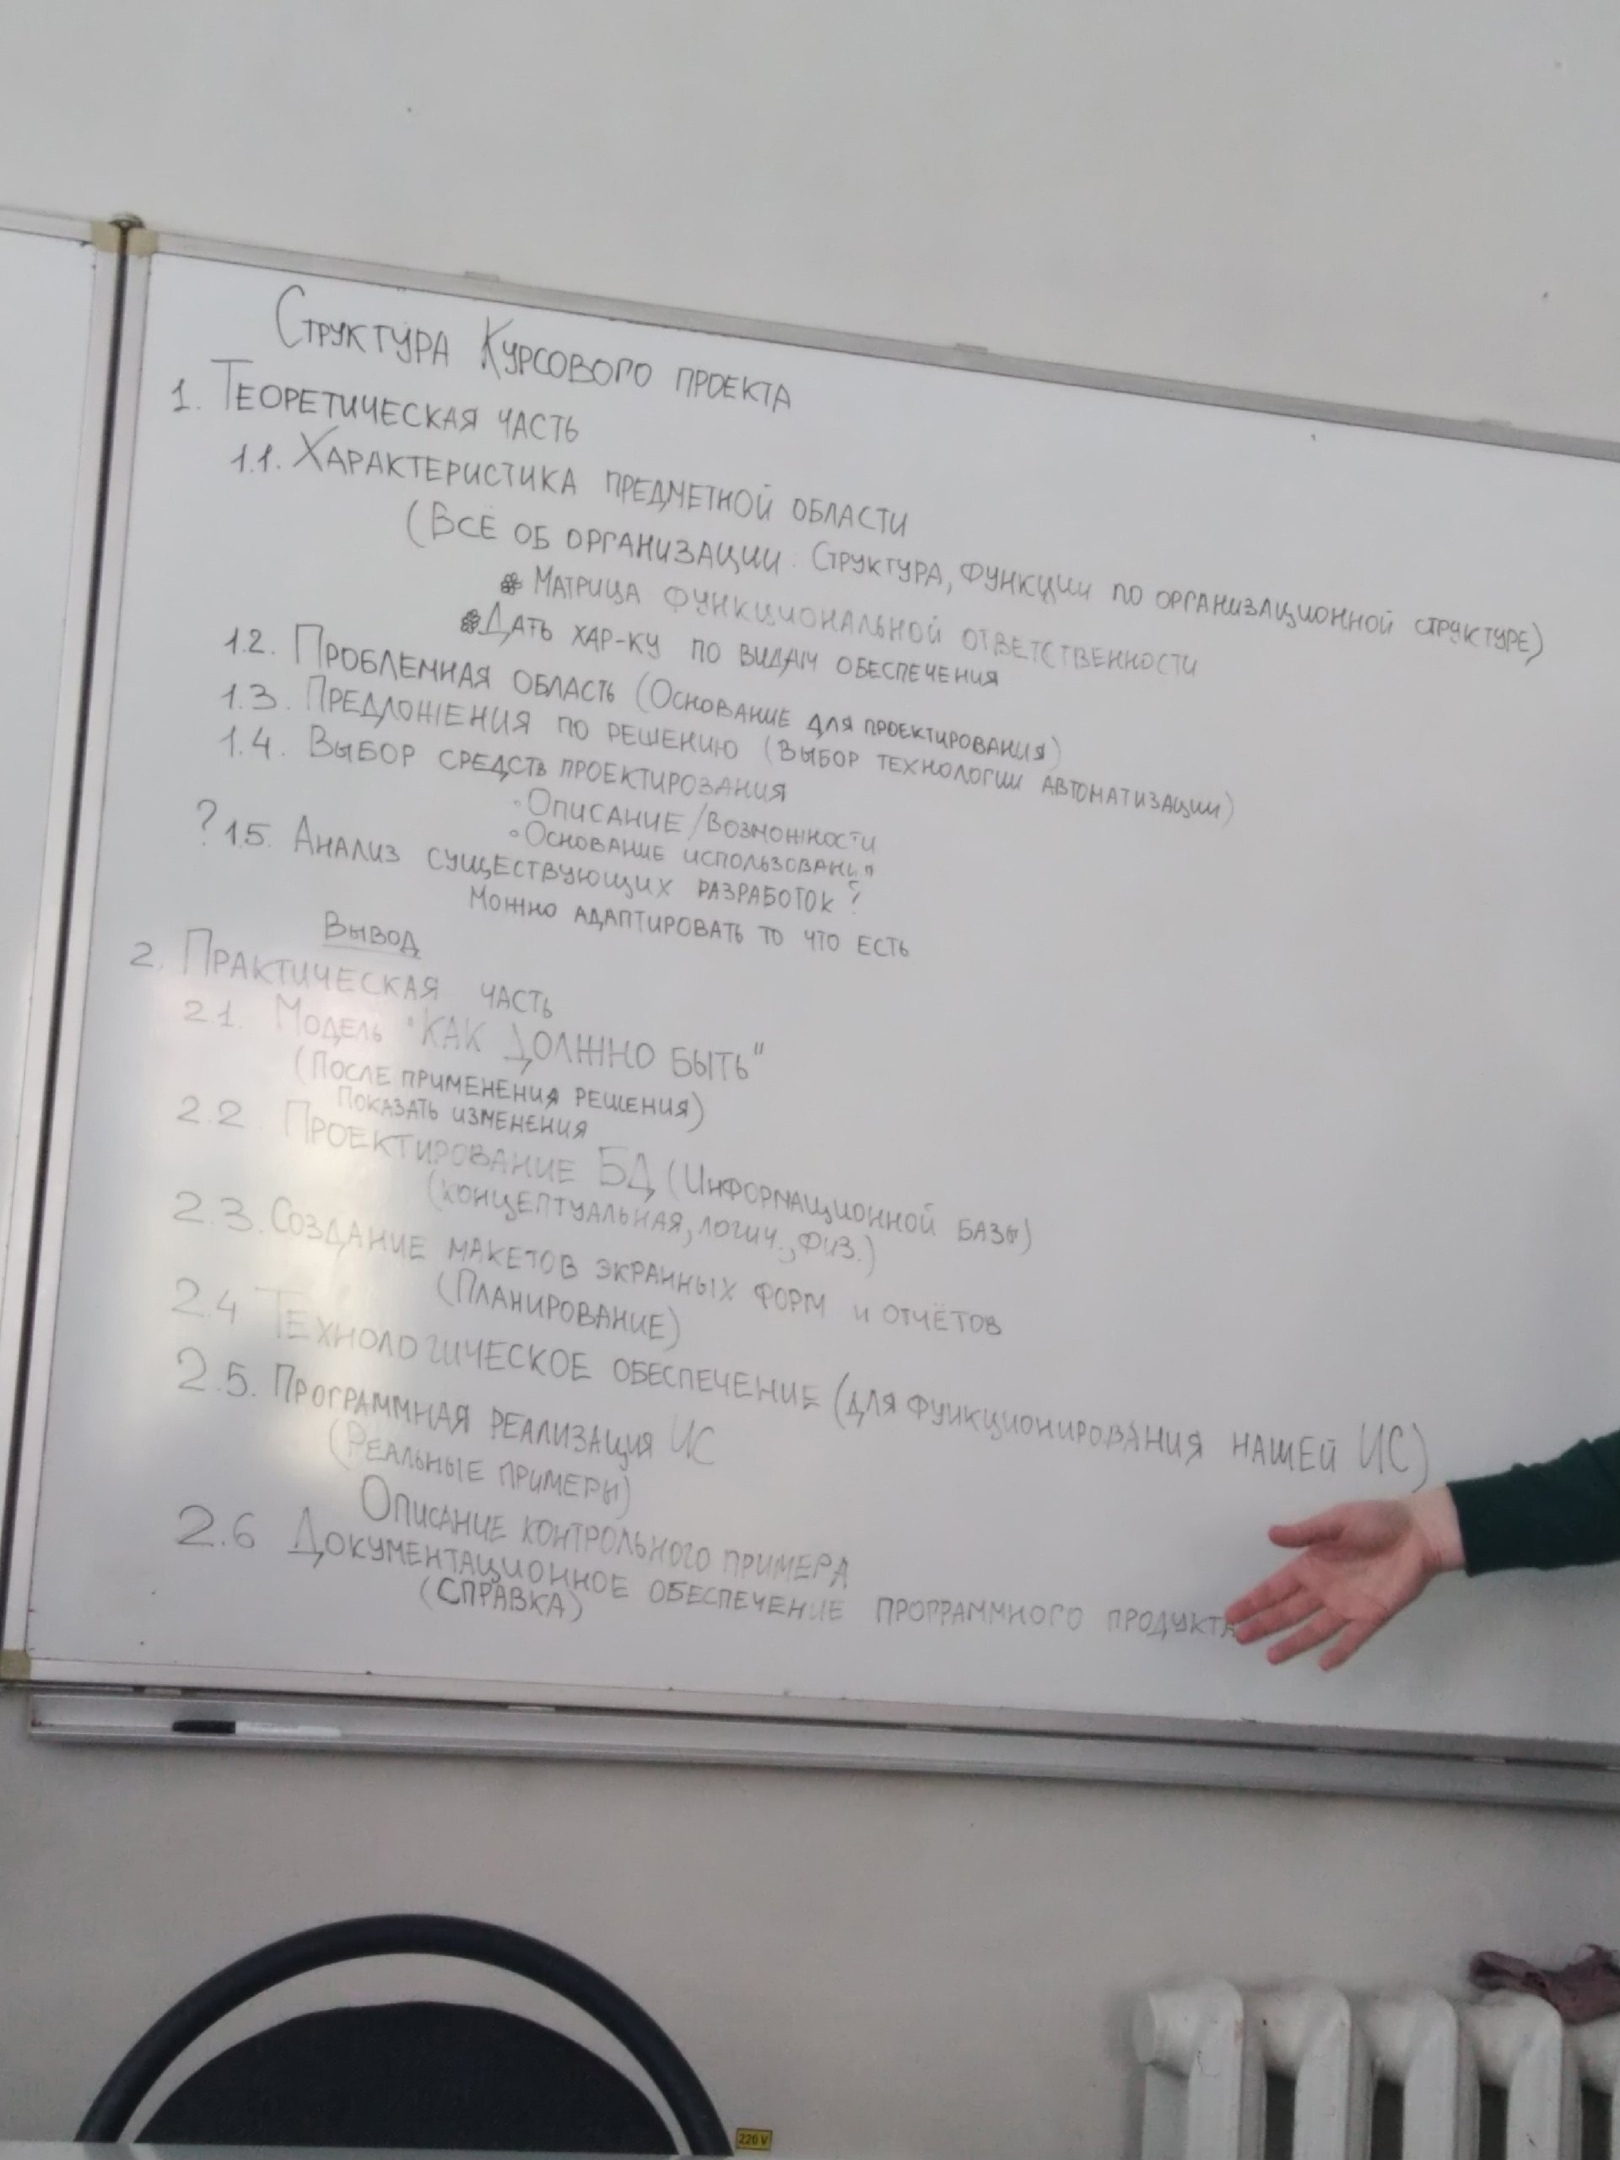 Структура Курсового проекта
1. Теоретическая часть
1.1. Характеристика предметной области
(Всё об организации: Структура, функции по организационной структуре)
Матрица функциональной ответственности
Дать хар-ку по видам обеспечения
1.2. Проблемная область (Основание для проектирования)
1.3. Предложения по решению (Выбор технологии автоматизации)
1.4. Выбор средств проектирования
◦ Описание/возможности
◦ Основание использования
? 1.5. Анализ существующих разработок?
Можно адаптировать то что есть
Вывод
2. Практическая часть
2.1. Модель "Как должно быть"
(После применения решения)
Показать изменения
2.2. Проектирование БД (Информационной базы)
(концептуальная, логич., физ.)
2.3. Создание макетов экранных форм и отчётов
(Планирование)
2.4 Технологическое обеспечение (для функционирования нашей ИС)
2.5. Программная реализация ИС
(Реальные примеры)
Описание контрольного примера
2.6 Документационное обеспечение программного продукта
(справка)
220 V